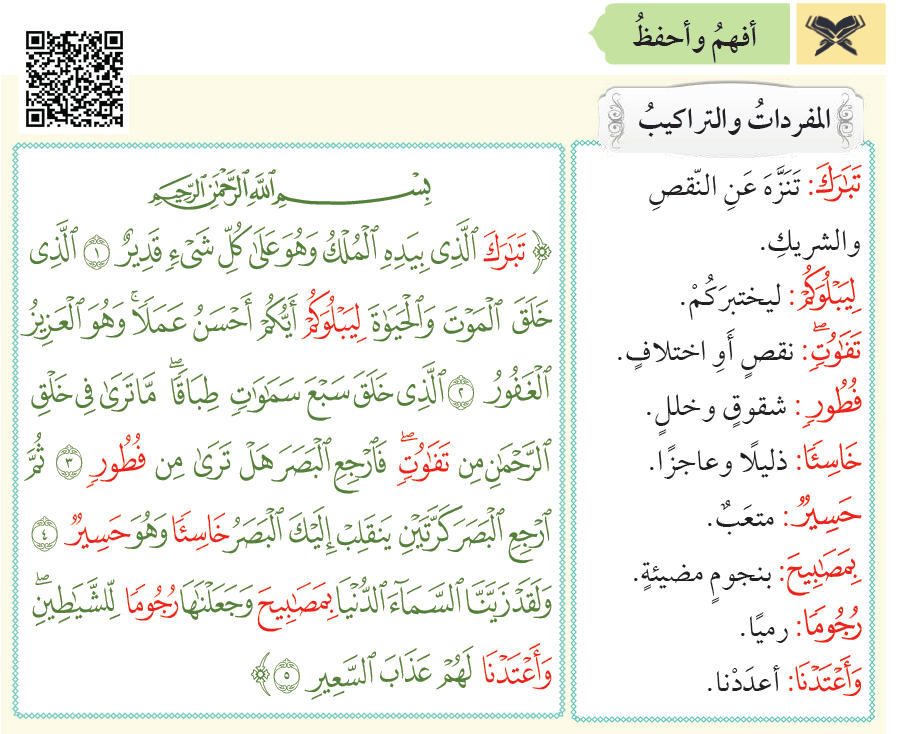 أفهمُ وأحفظُ
المفرداتُ والتراكيبُ
تَبَٰرَكَ: تَنَزَّهَ عَنِ النّقصِ
والشريكِ.
لِيَبۡلُوَكُمۡ: ليختبرَكُمْ.
تَفَٰوُتٖۖ: نقصٍ أَوِ اختلافٍ.
فُطُورٖ: شقوقٍ وخللٍ.
خَاسِئٗا: ذليلًا وعاجزًا.
حَسِيرٞ: متعَبٌ.
بِمَصَٰبِيحَ: بنجومٍ مضيئةٍ.
رُجُومٗا: رميًا.
وَأَعۡتَدۡنَا: أعدَدْنا.
بِسۡمِ ٱللَّهِ ٱلرَّحۡمَٰنِ ٱلرَّحِيمِ
﴿ تَبَٰرَكَ ٱلَّذِي بِيَدِهِ ٱلۡمُلۡكُ وَهُوَ عَلَىٰ كُلِّ شَيۡءٖ قَدِيرٌ ١ ٱلَّذِي
خَلَقَ ٱلۡمَوۡتَ وَٱلۡحَيَوٰةَ لِيَبۡلُوَكُمۡ أَيُّكُمۡ أَحۡسَنُ عَمَلٗاۚ وَهُوَ ٱلۡعَزِيزُ
ٱلۡغَفُورُ ٢ ٱلَّذِي خَلَقَ سَبۡعَ سَمَٰوَٰتٖ طِبَاقٗاۖ مَّا تَرَىٰ فِي خَلۡقِ
ٱلرَّحۡمَٰنِ مِن تَفَٰوُتٖۖ فَٱرۡجِعِ ٱلۡبَصَرَ هَلۡ تَرَىٰ مِن فُطُورٖ ٣ ثُمَّ
ٱرۡجِعِ ٱلۡبَصَرَ كَرَّتَيۡنِ يَنقَلِبۡ إِلَيۡكَ ٱلۡبَصَرُ خَاسِئٗا وَهُوَ حَسِيرٞ ٤
وَلَقَدۡ زَيَّنَّا ٱلسَّمَآءَ ٱلدُّنۡيَا بِمَصَٰبِيحَ وَجَعَلۡنَٰهَا رُجُومٗا لِّلشَّيَٰطِينِۖ
وَأَعۡتَدۡنَا لَهُمۡ عَذَابَ ٱلسَّعِيرِ ٥ ﴾